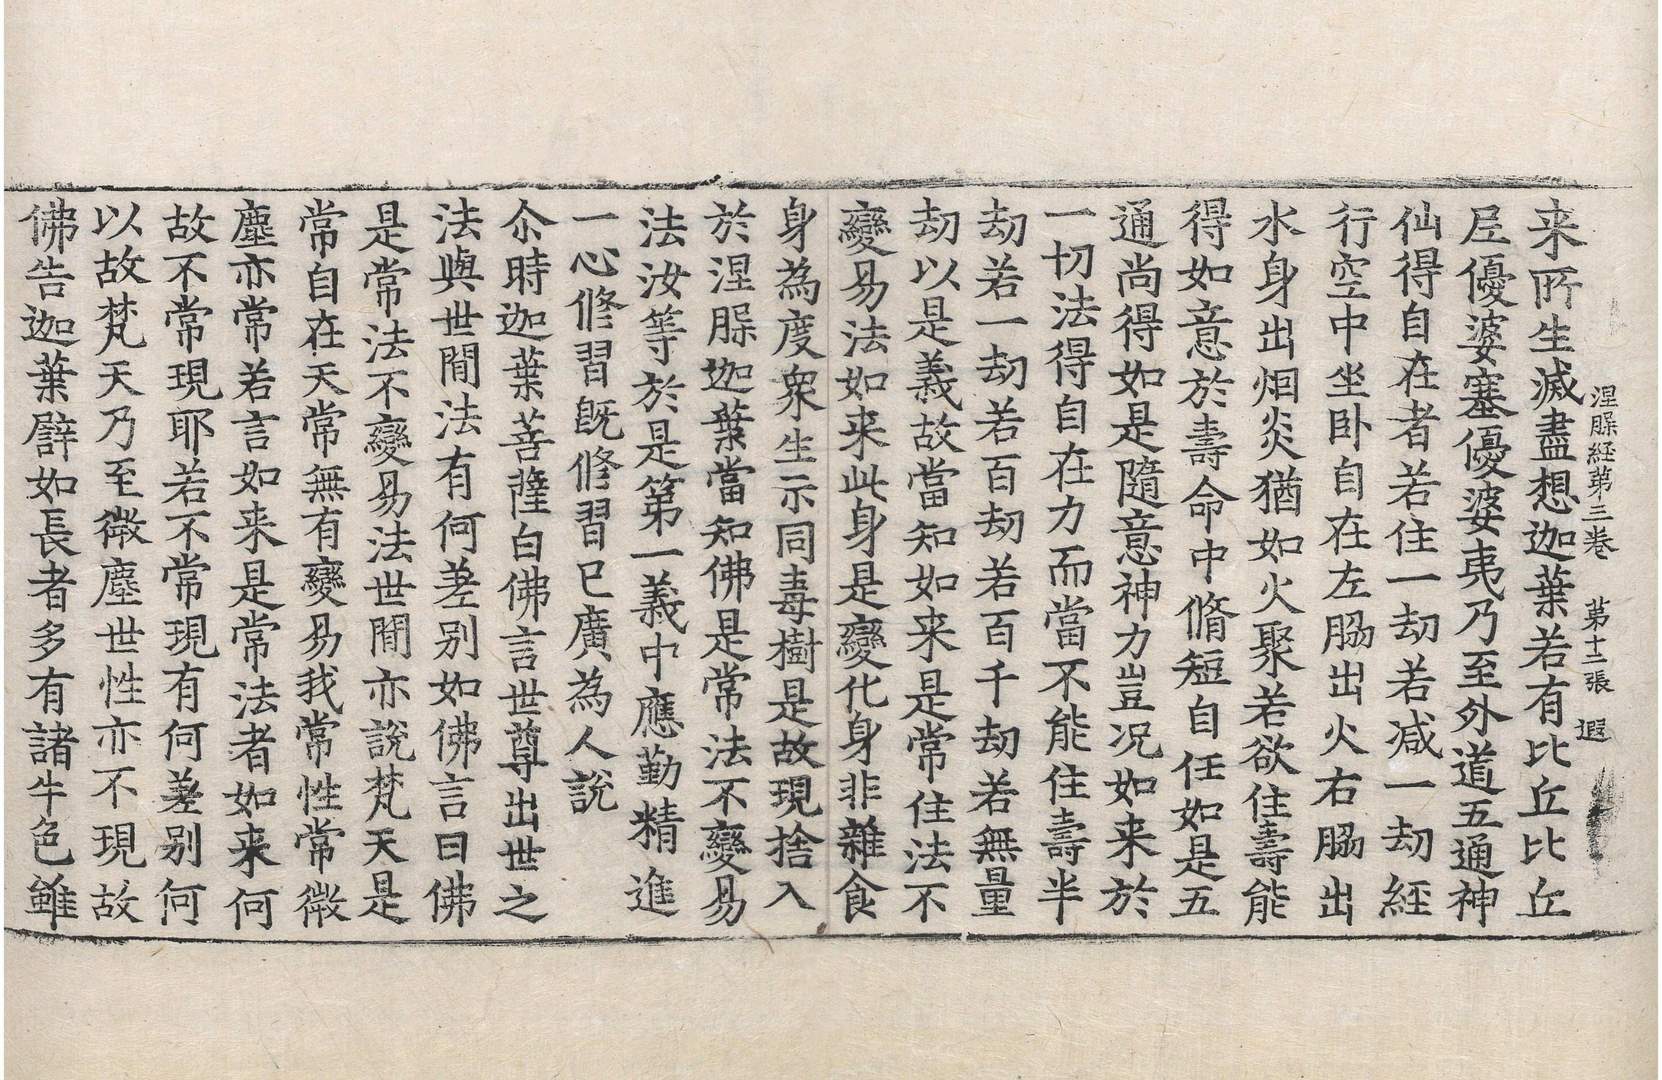 涅槃経第三卷 第十二張 遐
来所生滅盡想迦葉若有比丘比丘
尼優婆塞優婆夷乃至外道五通神
仙得自在者若住一劫若减一劫経
行空中坐卧自在左脇出火右脇出
水身出烟炎猶如火聚若欲住壽能
得如意於壽命中脩短自任如是五
通尚得如是隨意神力豈况如来於
一切法得自在力而當不能住壽半
劫若一劫若百劫若百千劫若無量
劫以是義故當知如来是常住法不
變易法如来此身是變化身非雜食
身為度衆生示同毒樹是故現捨入
於涅槃迦葉當知佛是常法不變易
法汝等於是第一義中應勤精進
一心修習既修習已廣為人說
尒時迦葉菩薩白佛言世尊出世之
法與世間法有何差别如佛言曰佛
是常法不變易法世間亦說梵天是
常自在天常無有變易我常性常微
塵亦常若言如来是常法者如来何
故不常現耶若不常現有何差别何
以故梵天乃至微塵世性亦不現故
佛告迦葉譬如長者多有諸牛色雖